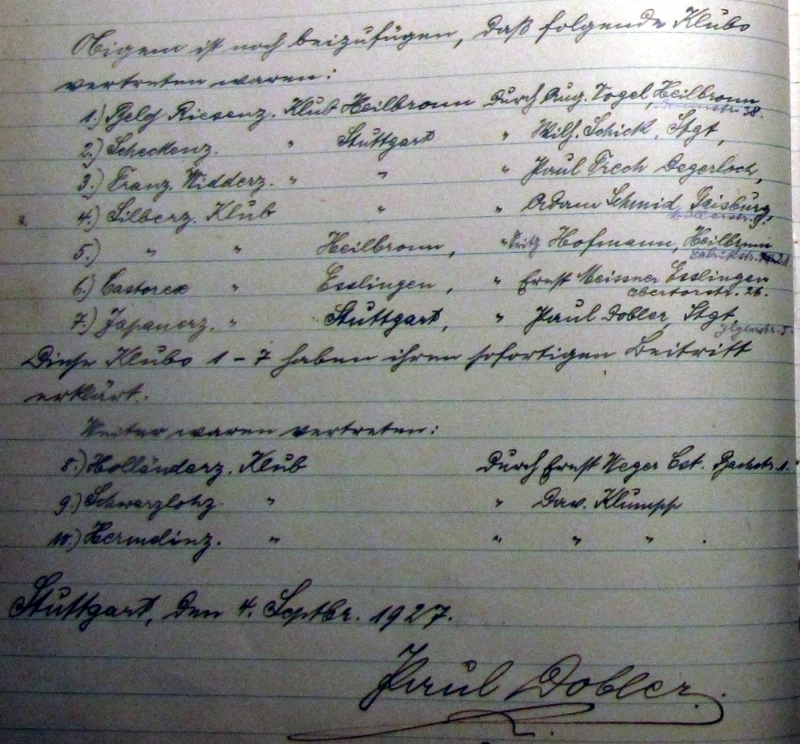 Obigem ist noch beizufügen, daß folgende Klubs
vertreten waren:
1.) Belg Riesenz. Klub Heilbronn durch Aug. Vogel, Heilbronn
38.
2.) Scheckenz. " Stuttgart " Wilh. Schick, Stgt,
3.) Franz. Widderz. " " " Paul Frech Degerloch,
4.) Silberz. Klub " " Adam Schmid, Gaisburg,
5.) " " Heilbronn, " Fritz Hofmann, Heilbronn
6.) Castorex " Esslingen, " Ernst Meissner Esslingen
Obertorstr. 26.
7.) Japanerz. " Stuttgart, " Paul Dobler, Stgt,
Ilgenstr. 5.
Diese Klubs 1 - 7 haben ihren sofortigen Beitritt
erklärt.
Weiter waren vertreten:
8.) Holländerz. Klub durch Ernst Weger Cst. Bachstr. 1.
9.) Schwarzlohz. " " Dav. Klumpp
10.) Hermelinz. " " " " .
Stuttgart, den 4. Septbr. 1927.
Paul Dobler.